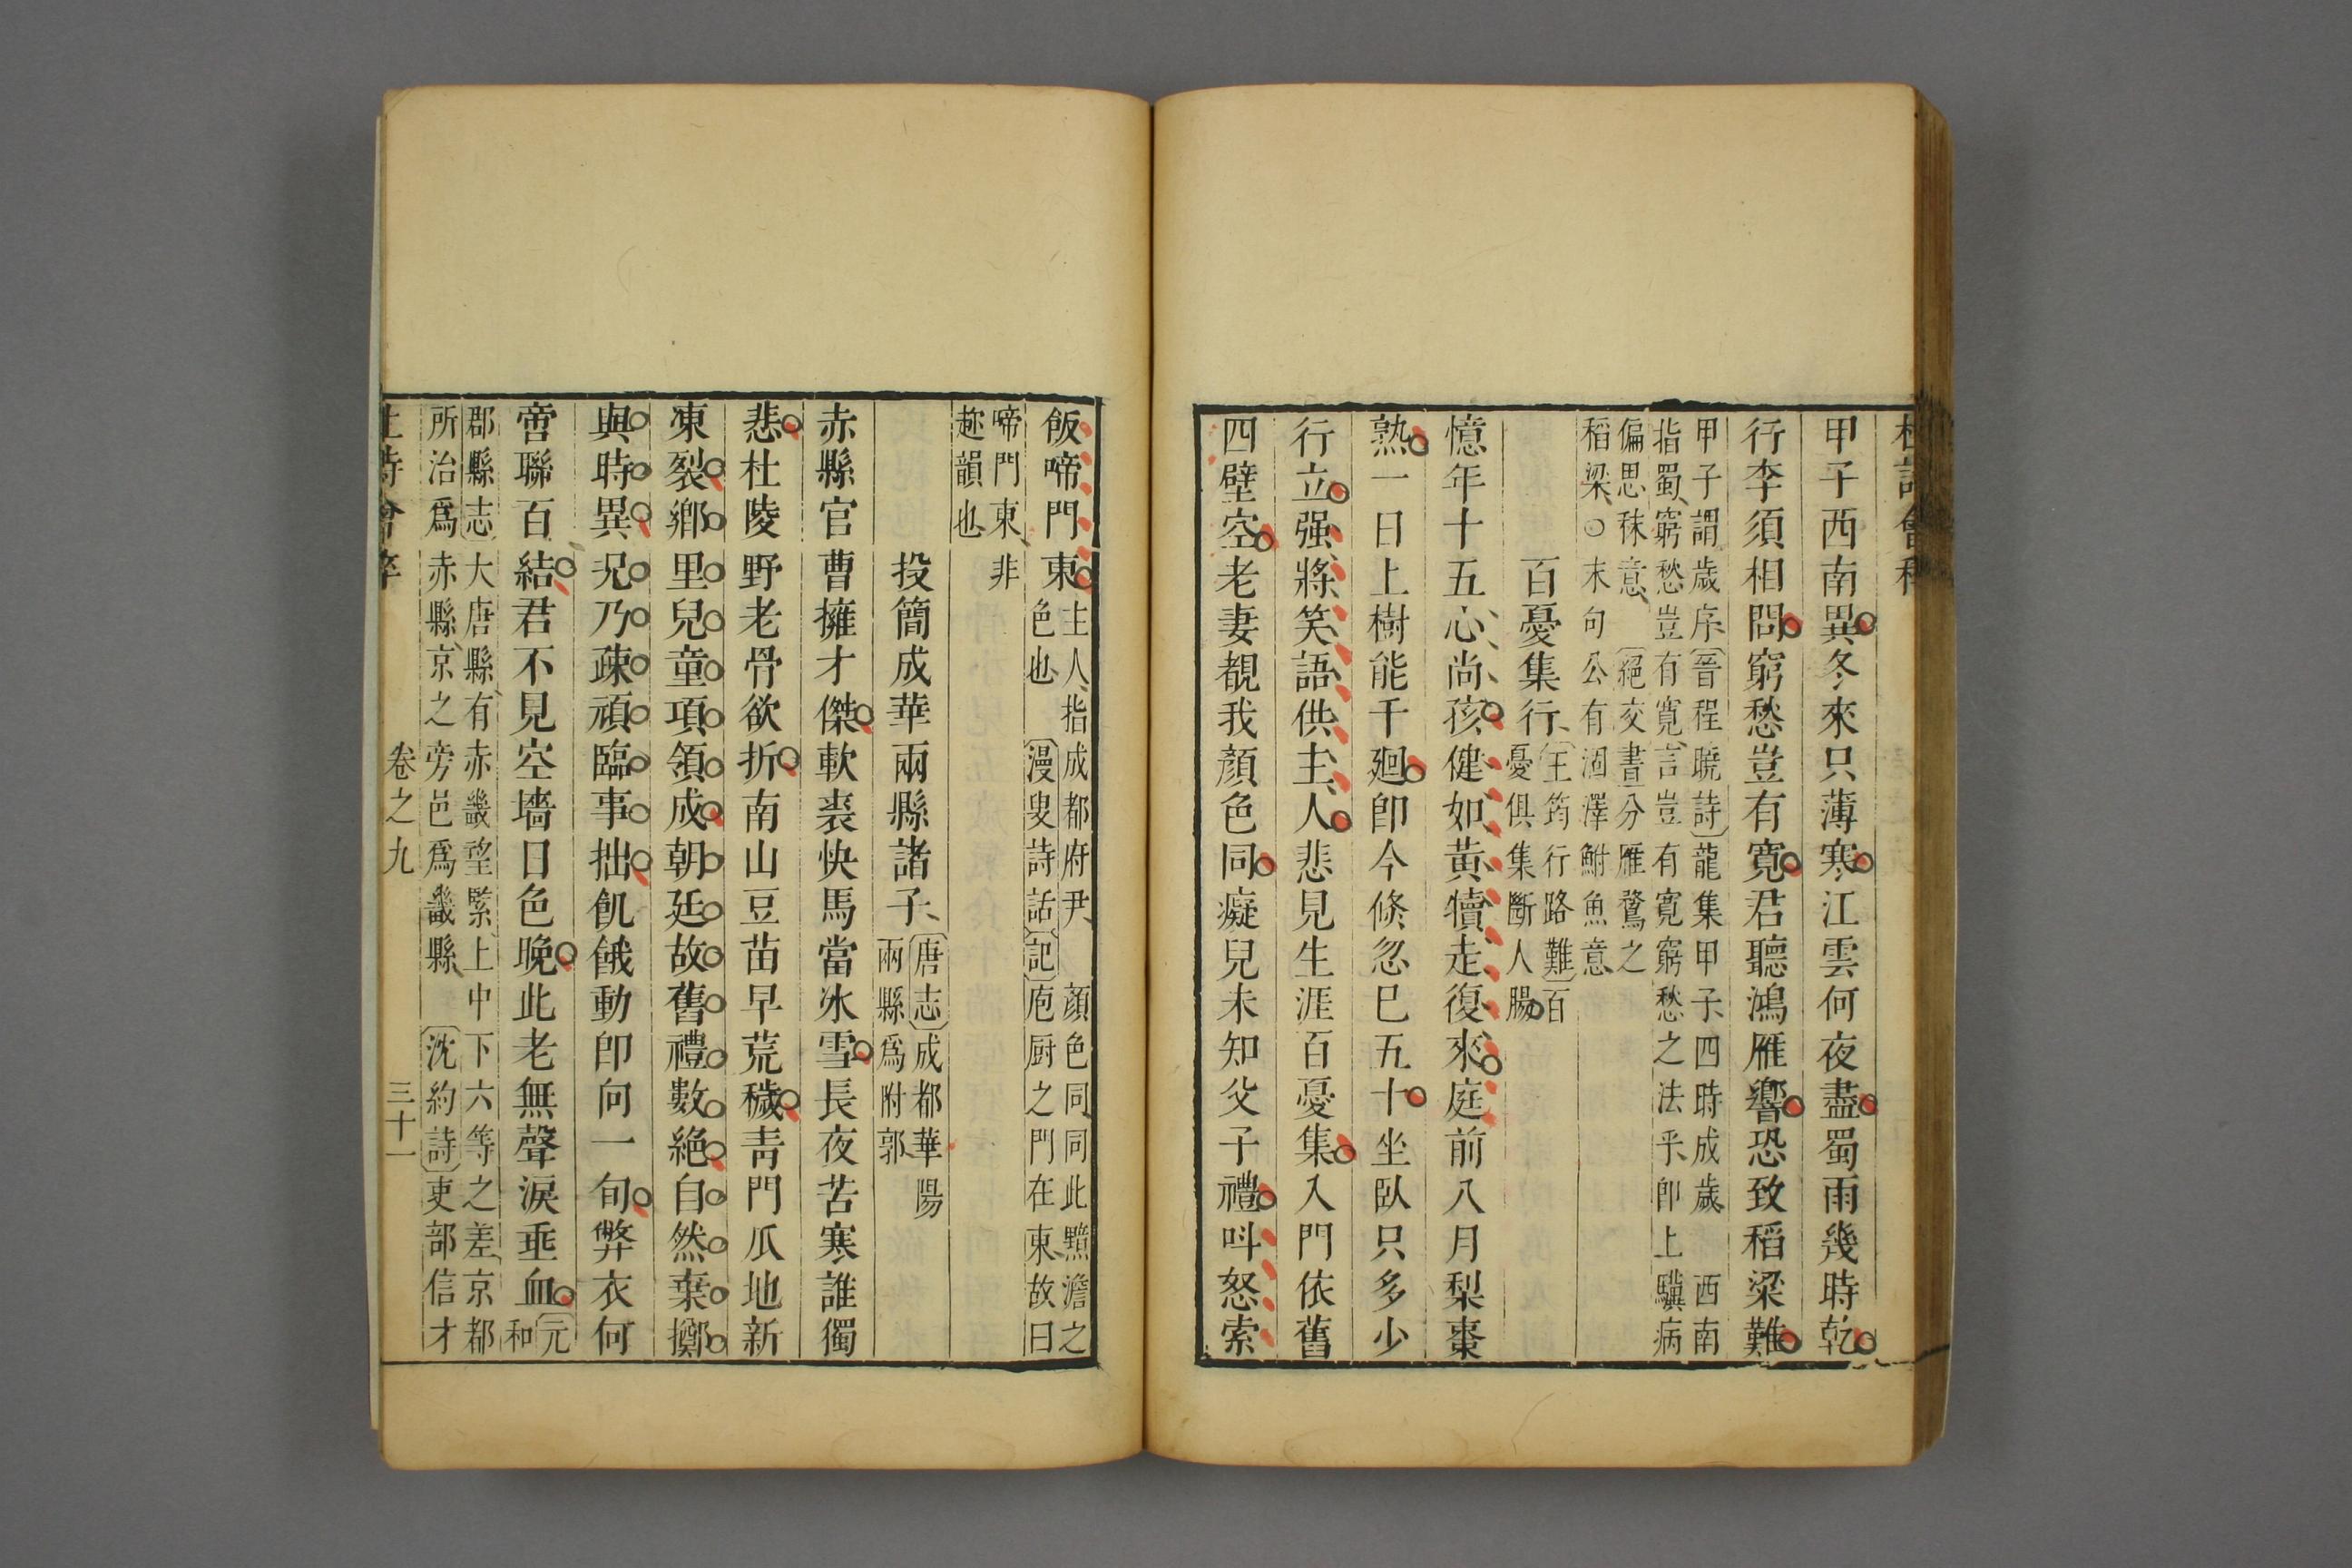 甲子西南異冬來只薄寒江雲何夜盡蜀雨幾時乾
行李須相問窮愁豈有寬君聽鴻雁響恐致稻梁難
甲子謂歲序晉程曉詩龍集甲子四時成歲 西南
指蜀窮愁豈有寬言豈有寬窮愁之法乎卽上驥病
偏思秣意 絕交書分雁鶩之
稻梁○末句公有涸澤鮒魚意
百憂集行王筠行路難百
憂俱集斷人腸
憶年十五心尚孩健如黃犢走復來庭前八月梨棗
熟一日上樹能千廻卽今倐忽巳五十坐臥只多少
行立强將笑語供主人悲見生涯百憂集入門依舊
四壁空老妻覩我顏色同癡兒未知父子禮呌怒索
飯啼門東主人指成都府尹 顏色同同此黯澹之
色也 漫叟詩話記庖厨之門在東故曰
啼門東非
趂韻也
投簡成華兩縣諸子唐志成都華陽
兩縣爲附郭
赤縣官曹擁才傑軟裘快馬當氷雪長夜苦寒誰獨
悲杜陵野老骨欲折南山豆苗早荒穢靑門瓜地新
凍裂鄕里兒童項領成朝廷故舊禮數絕自然棄擲
與時異况乃疎頑臨事拙飢餓動卽向一旬弊衣何
啻聯百結君不見空墻日色晚此老無聲淚垂血元
和
郡縣志大唐縣有赤畿望緊上中下六等之差京都
所治爲赤縣京之旁邑爲畿縣 沈約詩吏部信才
卷之九 三十一